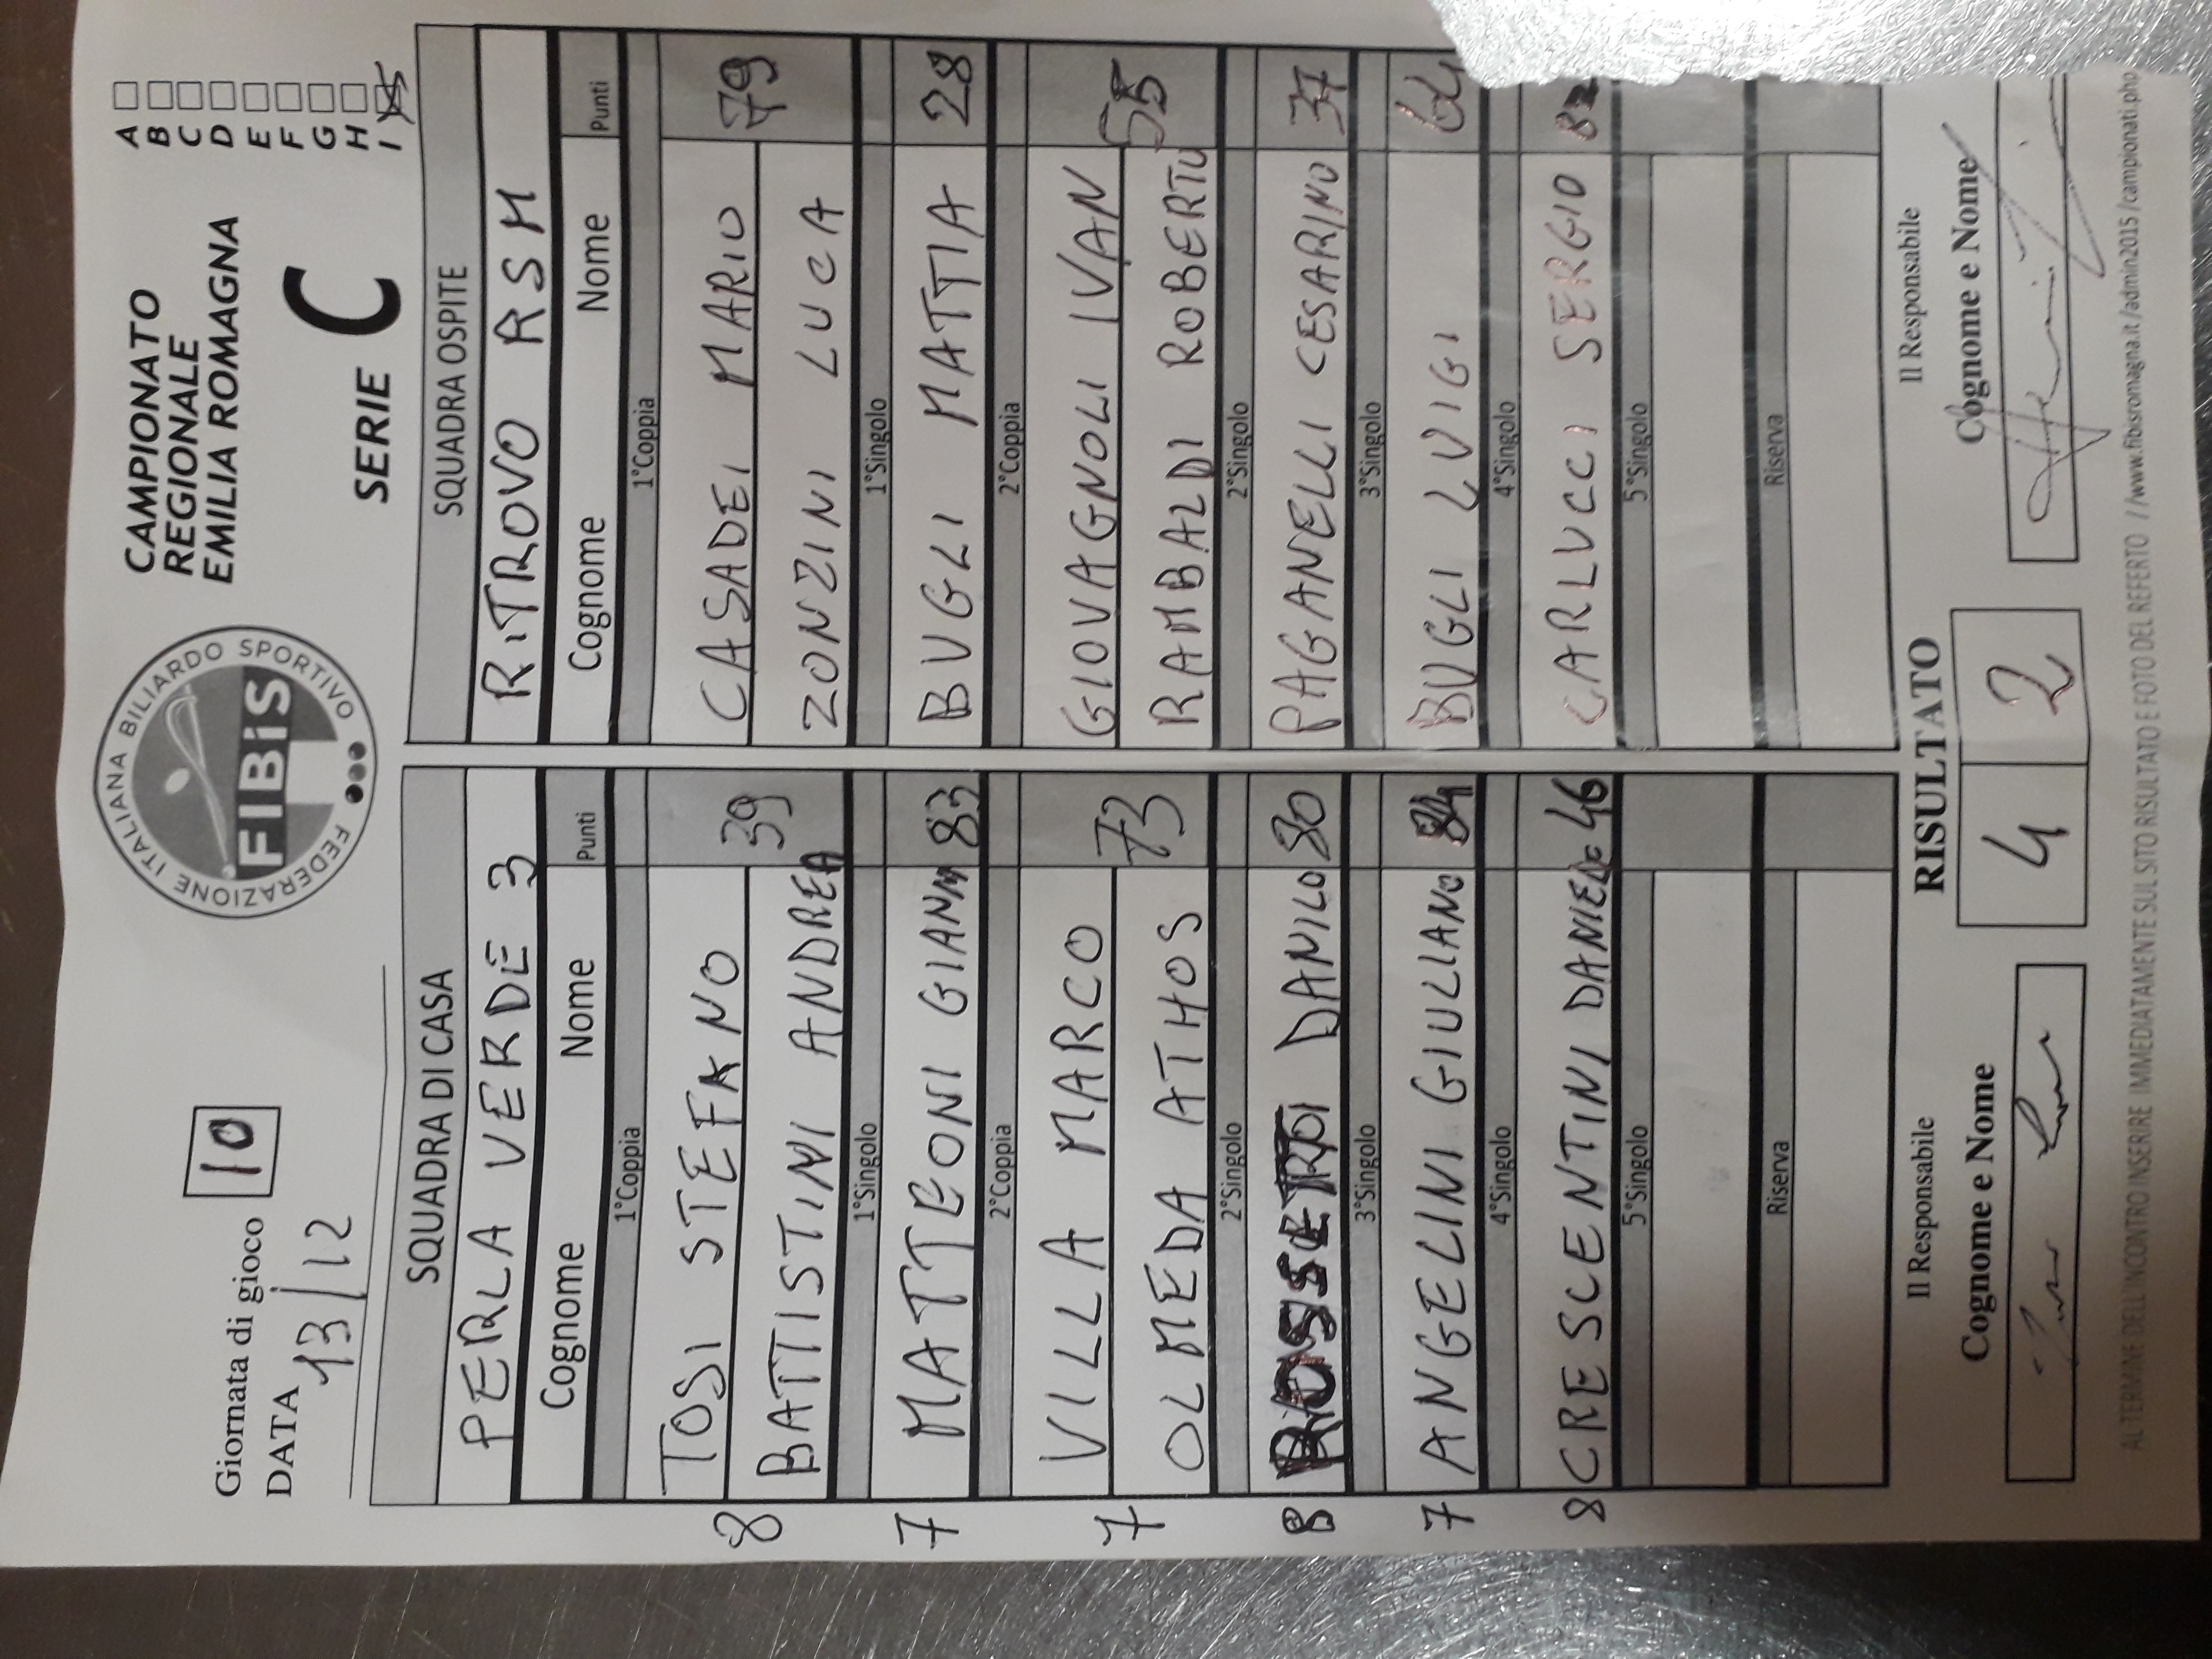 Giornata di gioco 10
DATA 13/12
FEDERAZIONE ITALIANA BILIARDO SPORTIVO
FIBiS
CAMPIONATO
REGIONALE
EMILIA ROMAGNA
SERIE C
A
B
C
D
E
F
G
H
I
SQUADRA DI CASA
PERLA VERDE 3
Cognome Nome Punti
1°Coppia
8 TOSI STEFANO 39
BATTISTINI ANDREA
1°Singolo
7 MATTEONI GIANNI 83
2°Coppia
7 VILLA MARCO 73
OLMEDA ATHOS
2°Singolo
8 DANILO 80
3°Singolo
7 ANGELINI GIULIANO 84
4°Singolo
8 CRESCENTINI DANIELE 46
5°Singolo
Riserva
SQUADRA OSPITE
RITROVO RSM
Cognome Nome Punti
1°Coppia
CASADEI MARIO 79
ZONZINI LUCA
1°Singolo
BUGLI MATTIA 28
2°Coppia
GIOVAGNOLI IVAN 55
RAMBALDI ROBERTO
2°Singolo
PAGANELLI CESARINO 37
3°Singolo
BUGLI LUIGI 64
4°Singolo
CARLUCCI SERGIO
5°Singolo
Riserva
Il Responsabile
Cognome e Nome
RISULTATO
4 2
Il Responsabile
Cognome e Nome
AL TERMINE DELL'INCONTRO INSERIRE IMMEDIATAMENTE SUL SITO RISULTATO E FOTO DEL REFERTO //www.fibisromagna.it/admin2015/campionati.php